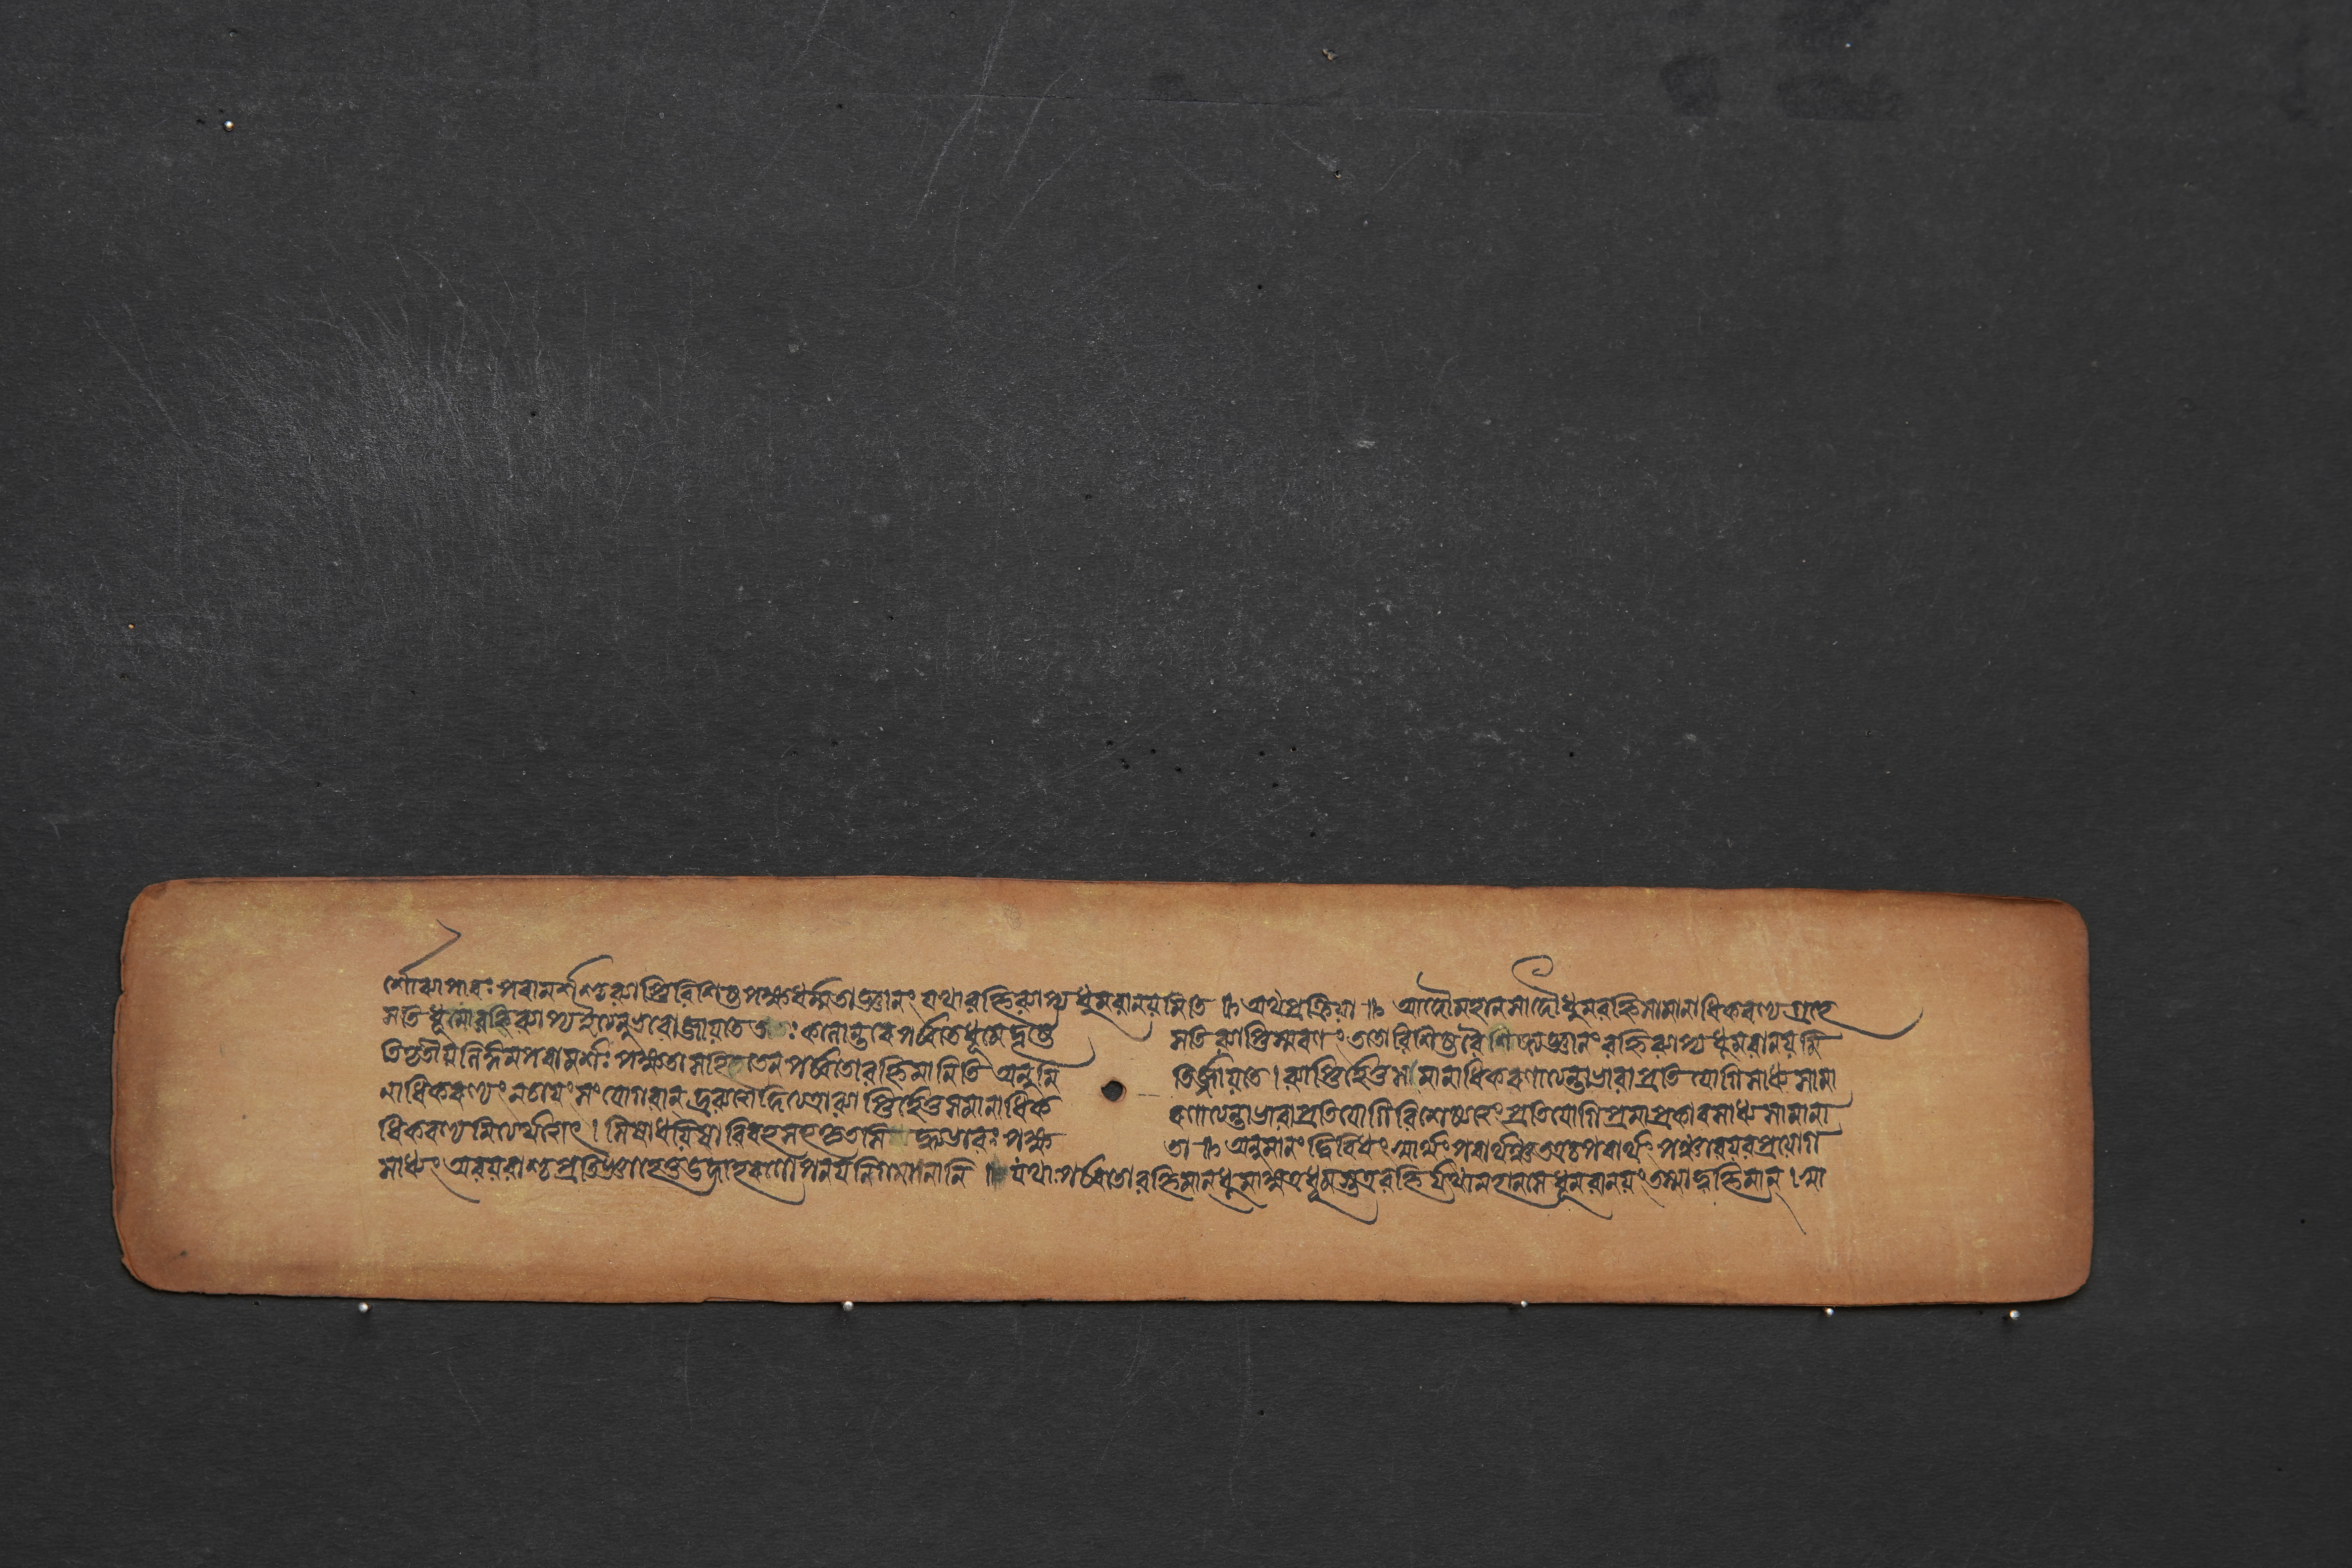 র্শোব্যাপারঃ পরামর্শশ্চ ব্যাপ্তিবিশিষ্টপক্ষধর্ম্মতাজ্ঞানং যথা বহ্নিব্যাপ্যধূমবানয়মিতি ॥ অথ প্রক্রিয়া ॥ আদৌ মহানসাদৌ ধূমবহ্নিসামানাধিকরণ্যগ্রহে
সতি ধূমোবহ্নিব্যাপ্য ইত্যনুভবোজায়তে ততঃ কালান্তরে পর্ব্বতে ধূমে দৃষ্টে সতি ব্যাপ্তিস্মরণং ততো বিশিষ্টবৈশিষ্ট্যজ্ঞানং বহ্নিব্যাপ্যধূমবানয়মি
তি তৃতীয়লিঙ্গপরামর্শঃ পক্ষতাসহিতেন পর্ব্বতোবহ্নিমানিতি অনুমিতির্জায়তে । ব্যাপ্তির্হেতুসমানাধিকরণাত্যন্তাভাবাপ্রতিযোগিসাধ্যসামা
নাধিকরণ্যং সংযোগবান্ দ্রব্যত্বাদিত্যত্রাব্যাপ্তির্হেতুসমানাধিকরণাত্যন্তাভাবাপ্রতিযোগি প্রতিযোগি সাধ্যসামানা
ধিকরণ্যমিত্যর্থাৎ । সিষাধয়িষাবিরহসহকৃত ভাবঃ পক্ষতা ॥ অনুমানং দ্বিবিধং স্বার্থং পরার্থঞ্চ তত্র পরার্থং পঞ্চাবয়বপ্রয়োগ
সাধ্যং অবয়বাশ্চ প্রতিজ্ঞাহেতূদাহরণোপনয়নিগমনানি ॥ যথা পর্ব্বতোবহ্নিমান্ ধূমাৎ যত্র ধূমস্তত্র বহ্নির্যথা মহানসে ধূমবানয়ং তস্মাদ্বহ্নিমান্ । সা